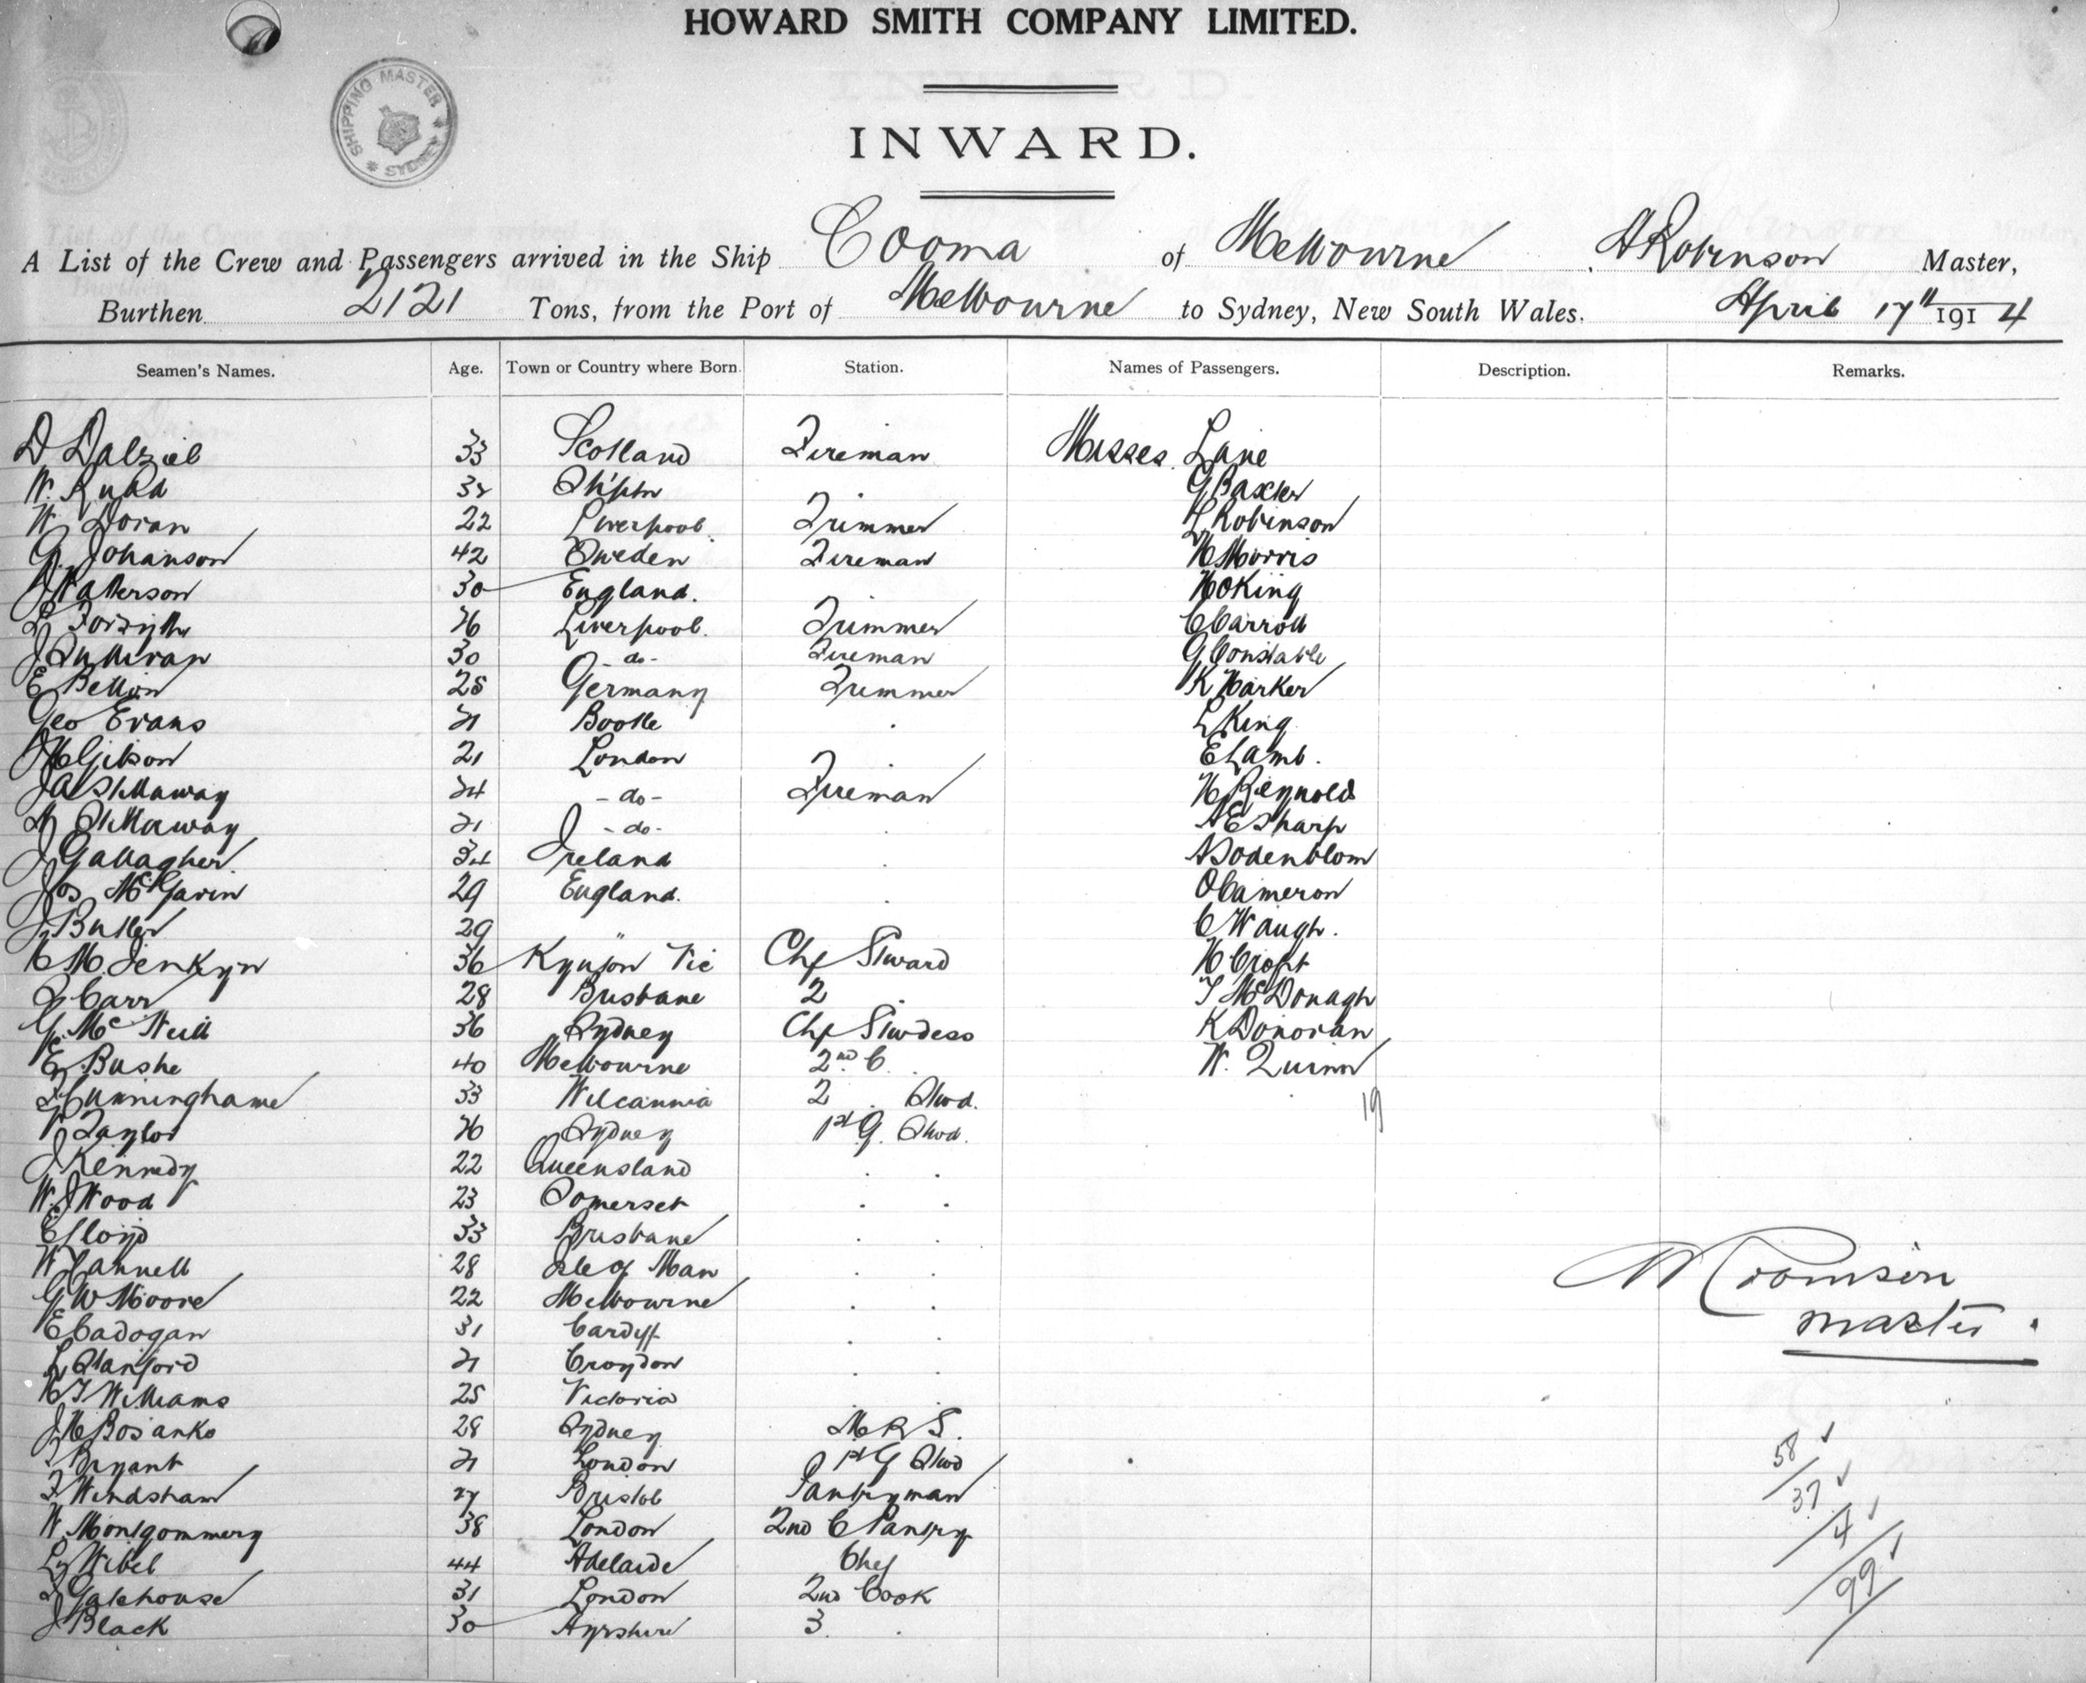 HOWARD SMITH COMPANY LIMITED.
SHIPPING MASTER SYDNEY
INWARD.
A List of the Crew and Passengers arrived in the Ship Cooma of Melbourne A Robinson Master,
Burthen 2121 Tons, from the Port of Melbourne to Sydney, New South Wales. April 17th 1914
Seamen's Names. Age. Town or Country where Born. Station. Names of Passengers. Description. Remarks.
D Dalziel 33 Scotland Fireman Misses Lane
W. 32 G Baxter
W Doran 22 Liverpool. Trimmer L Robinson
G. Johanson 42 Sweden Fireman H Morris
J Paterson 30 England. H O King
L Forsyth 26 Liverpool. Trimmer C Carroll
J Sullivan 30 - do - Fireman G Constable
E Bellion 25 Germany Trimmer K Harker
Geo Evans 21 Bootle . L King
J H Gibson 21 London E Lamb.
J A Stillaway 24 - do - Fireman H Reynolds
Stillaway 21 - do - . A E Sharp
J Gallagher. 34 Ireland . A Sodenblom
Jos McGavin 29 England. . O Cameron
J Butler 29 " C Waugh.
H M Jenkyn 36 Vic Chf Stward H Croft
J Carr 28 Brisbane 2 . T McDonagh
G. McNeill 36 Sydney Chf Stwdess K Donovan
E. Bushe 40 Melbourne 2nd C W. Quinn
Cunninghame 33 Wilcannia 2 . Stwd. 19
Taylor 26 Sydney 1st G. Stwd.
J Kennedy 22 Queensland . .
W. J Wood 23 Somerset . .
E Lloyd 33 Brisbane . .
W Cannell 28 Isle of Man . .
G W Moore 22 Melbourne . .
E Cadogan 31 Cardiff . .
L Stanford 21 Croydon . .
H T Williams 25 Victoria
J H Bosanko 28 Sydney M R S.
Bryant 21 London 1st G Stwd
F Windsham 27 Bristol Pantryman
W. Montgommery 38 London 2nd C Pantry
L Wibel 44 Adelaide Chef
Gatehouse 31 London 2nd Cook
J Black 30 Ayrshire 3 .
A Robinson
master.
58
37
4
99